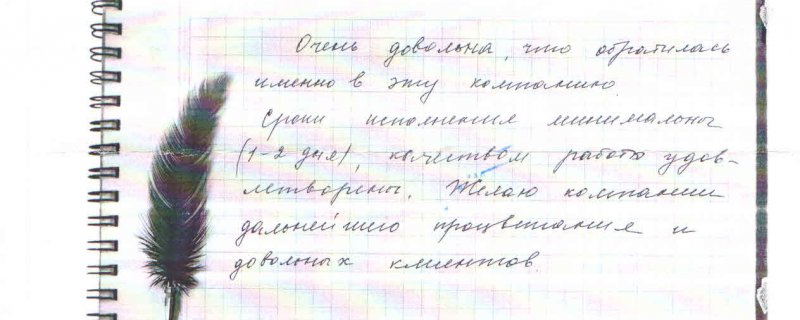 Очень довольна, что обратилась
именно в эту компанию.
Сроки исполнения минимальны
(1-2 дня), качеством работы удов-
летворены. Желаю компании
дальнейшего процветания и
довольных клиентов.